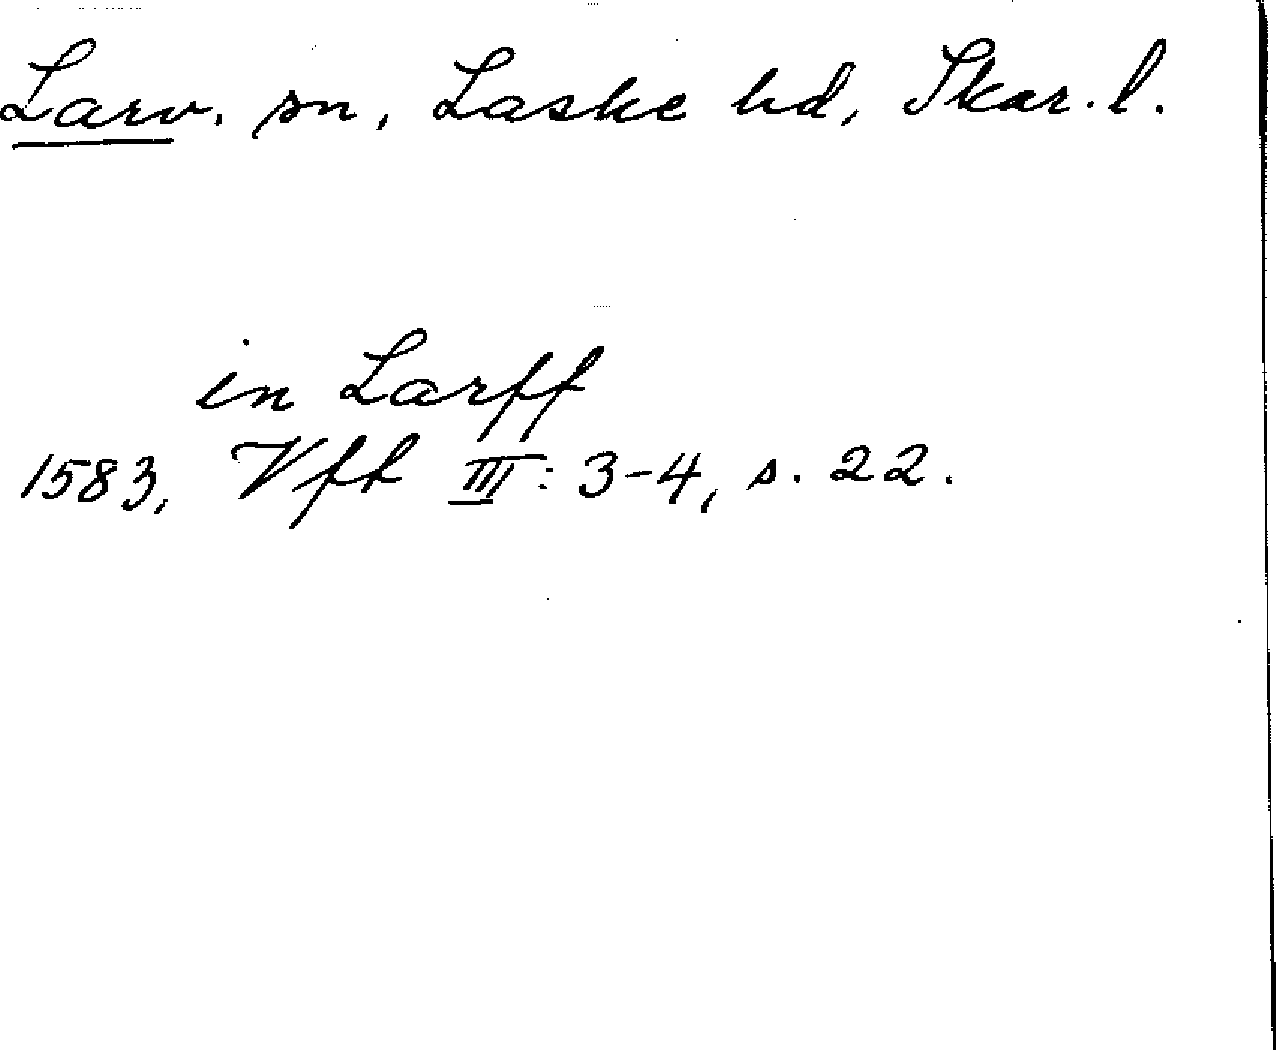 Larv. sn, Laske hd, Skar. l.
in Larff
1583, Vft III: 3-4, s. 22.